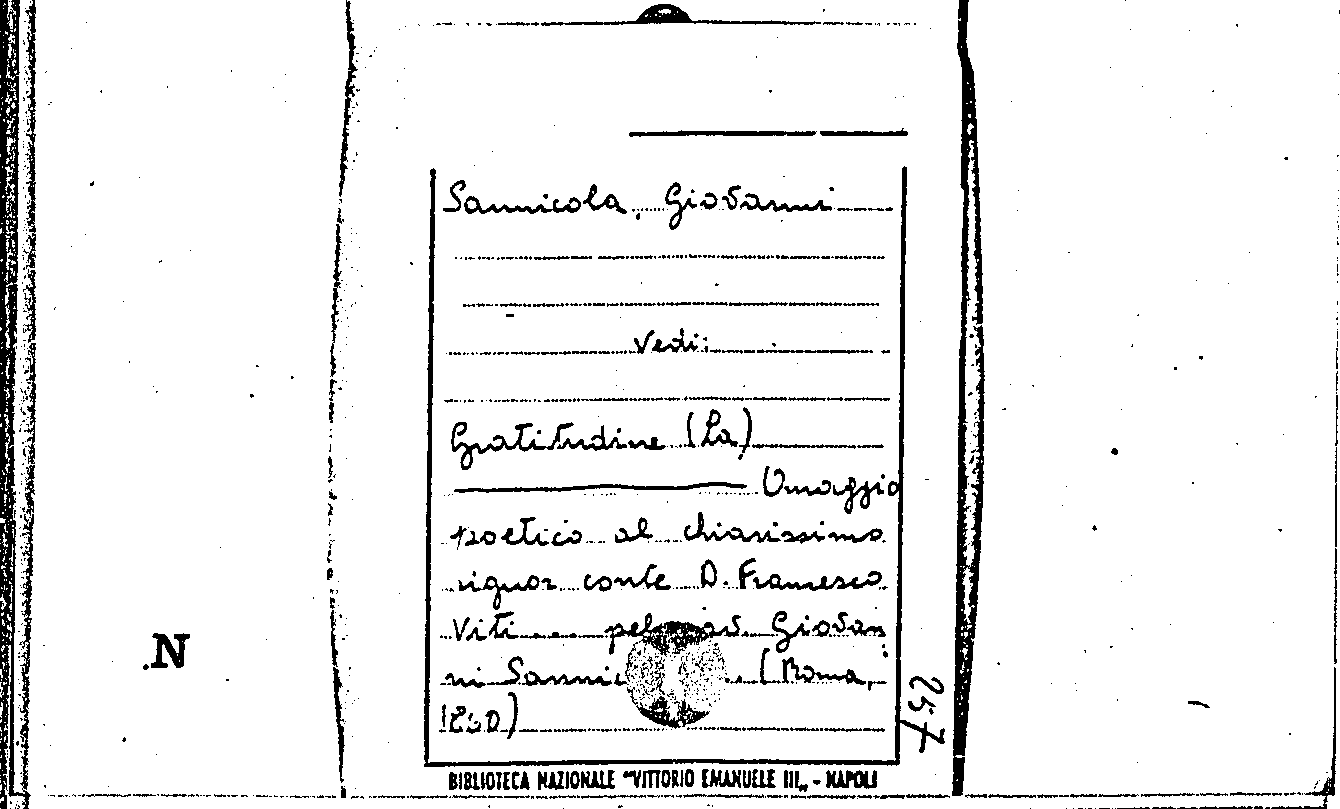 Sannicola, Giovanni
Vedi:
Gratitudine (La)
Omaggio
poetico al chiarissimo
signor conte D. Francesco
Viti... pel cav. Giovan
ni Sannic
.. (Roma,
257
N
BIBLIOTECA NAZIONALE "VITTORIO EMANUELE III„ - NAPOLI